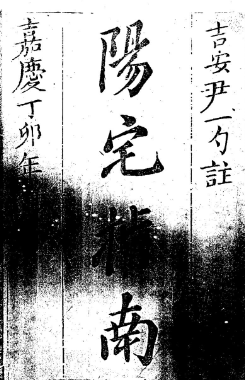 吉安尹一勺註
陽宅指南
嘉慶丁卯年